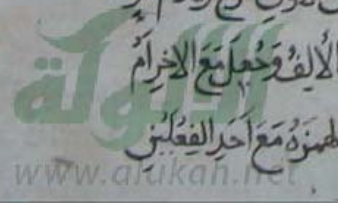 الألِفُ وَجُعِلَ مَعَ الاخِرِ أَمْ
الهمزَةُ مَعَ أَحَدِ الفِعْلَيْنِ
الألوكة
www.alukah.net